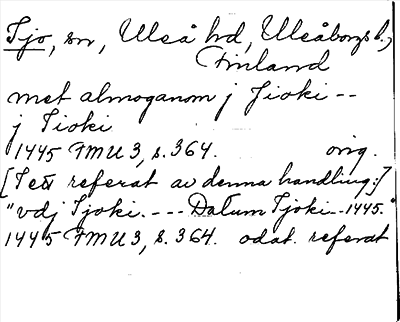 Tjo, sn, Uleå hd, Uleåborgs l.,
Finland
met almoganom j Jioki --
j Tioki
1445 FMU 3, s. 364. orig.
[I ett referat av denna handling:]
"vdj Tjoki. --- Datum Tjoki -- 1445."
1445 FMU 3, s. 364. odat. referat